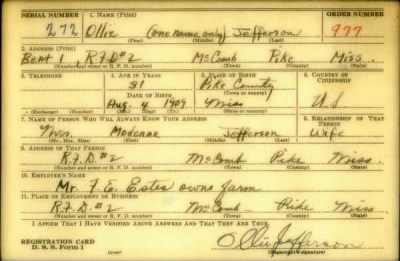 SERIAL NUMBER 1. NAME (Print) ORDER NUMBER
272 Ollie (one name only) Jefferson 977
(First) (Middle) (Last)
2. ADDRESS (Print)
Beat 1, R.F.D. #2 McComb Pike Miss.
(Number and street or R. F. D. number) (Town) (County) (State)
3. TELEPHONE 4. AGE IN YEARS 5. PLACE OF BIRTH 6. COUNTRY OF CITIZENSHIP
31 Pike County
DATE OF BIRTH (Town or county)
Aug. 4 1909 Miss U S
(Exchange) (Number) (Mo.) (Day) (Yr.) (State or country)
7. NAME OF PERSON WHO WILL ALWAYS KNOW YOUR ADDRESS 8. RELATIONSHIP OF THAT PERSON
Mrs. Jefferson Wife
(Mr., Mrs., Miss) (First) (Middle) (Last)
9. ADDRESS OF THAT PERSON
R.F.D. #2 McComb Pike Miss.
(Number and street or R. F. D. number) (Town) (County) (State)
10. EMPLOYER'S NAME
Mr. F. E. Estes owns farm
11. PLACE OF EMPLOYMENT OR BUSINESS
R.F.D. #2 McComb Pike Miss
(Number and street or R. F. D. number) (Town) (County) (State)
I AFFIRM THAT I HAVE VERIFIED ABOVE ANSWERS AND THAT THEY ARE TRUE.
REGISTRATION CARD
D. S. S. Form 1
Ollie Jefferson
(Registrant's signature)